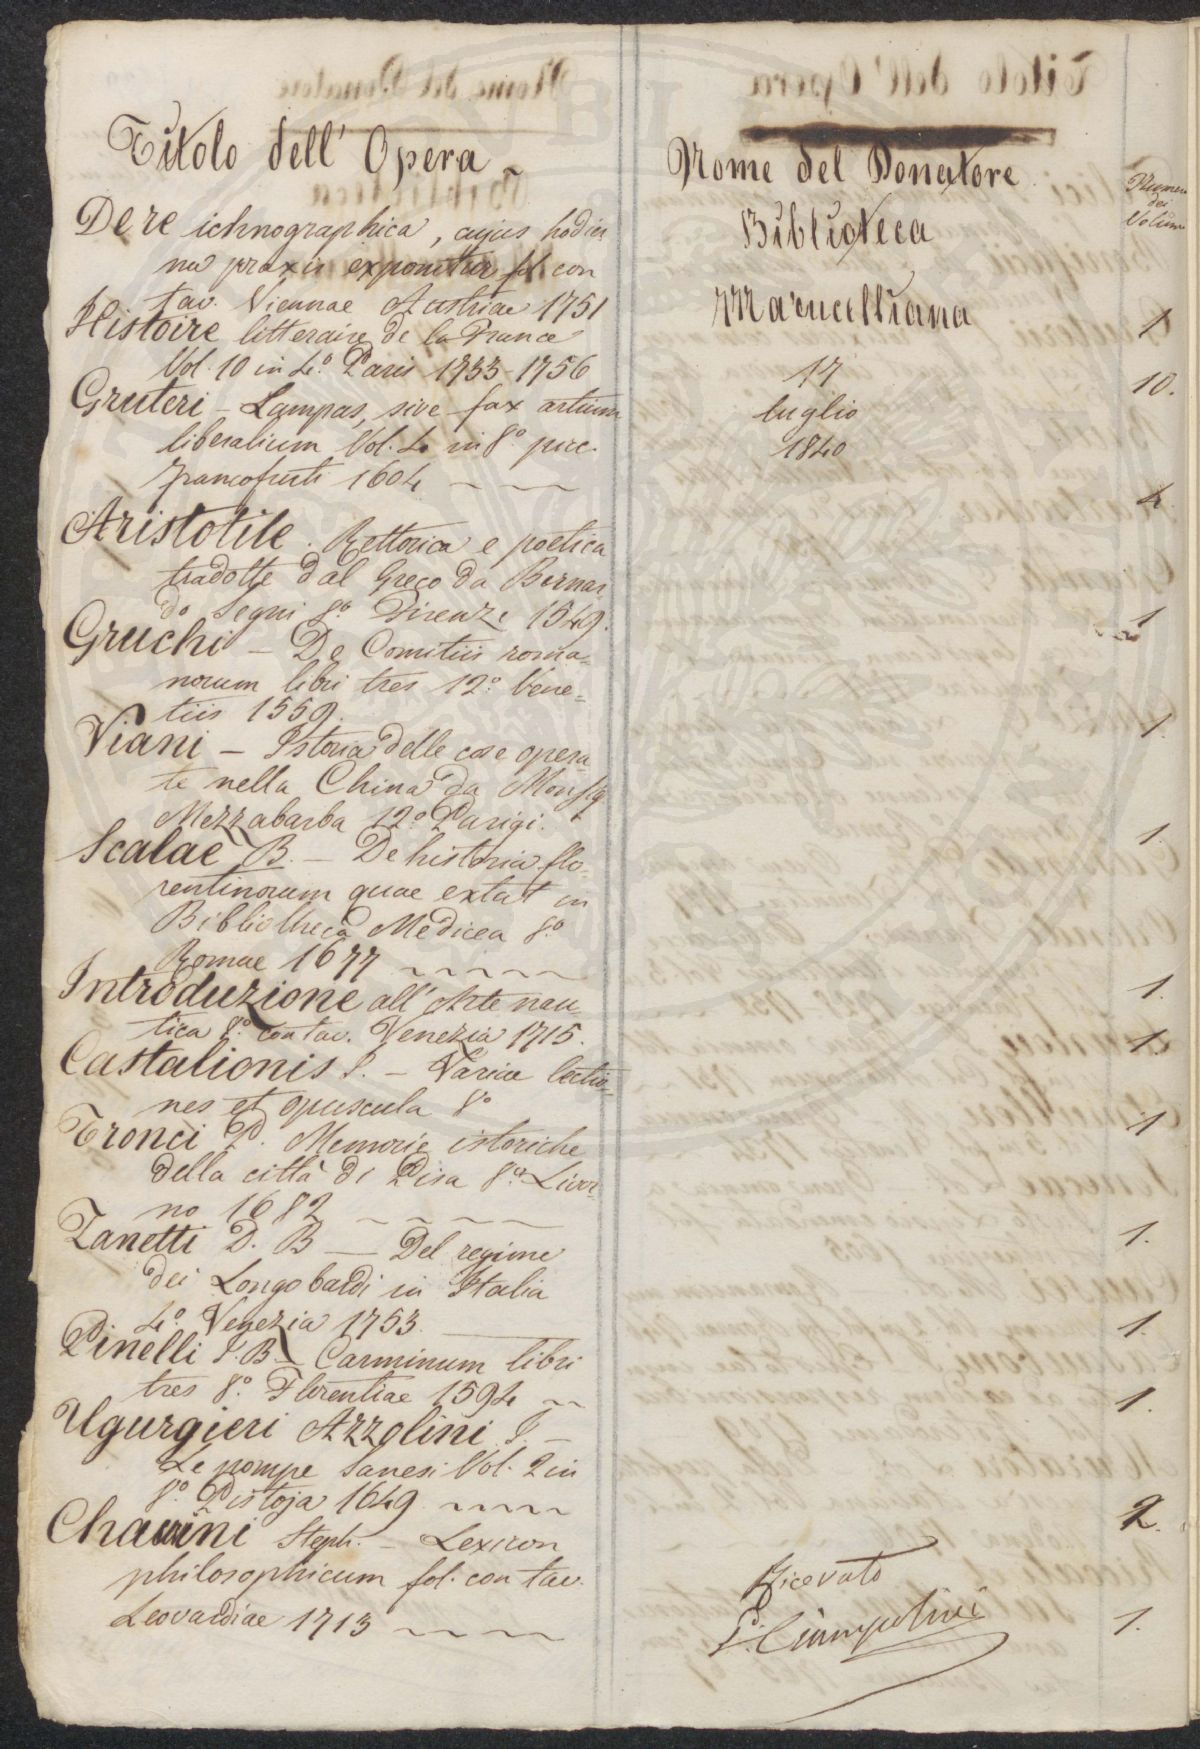 Titolo dell' Opera
De re ichnographica, cujus hodier
na praxis exponitur fol. con
tav. Viennae Austriae 1751
Histoire litteraire de la France
Vol. 10 in 4.º Paris 1733-1756
Gruteri - Lampas, sive fax artium
liberalium Vol. 4 in 8.º picc.
Francofurti 1604
Aristotile. Rettorica e poetica
tradotte dal Greco da Bernar
do Segni 8.º Firenze 1549.
Gruchi - De Comitiis roma=
norum libri tres 12.º Vene=
tiis 1559.
Viani - Istoria delle cose opera
te nella China da Monsig
Mezzabarba 12.º Parigi.
Scalae B. - De historia flo=
rentinorum quae extat in
Bibliotheca Medicea 8.º
Romae 1677
Introduzione all'Arte nau
tica 8.º con tav. Venezia 1715.
Castalionis I. - Variae lectio=
nes et opuscula 8.º
Tronci P. Memorie istoriche
della città di Pisa 8.º Livor
no 1682
Zanetti D. B - Del regime
dei Longobardi in Italia
4.º Venezia 1753.
Pinelli I. B - Carminum libri
tres 8.º Florentiae 1594
Ugurgieri Azzolini I. -
Le pompe Sanesi Vol. 2 in
8.º Pistoja 1649
Chauvini Steph. - Lexicon
philosophicum fol. con tav.
Leovardiae 1713
Nome del Donatore
Biblioteca
Marucelliana
17
luglio
1840
Ricevuto
P. Ciampolini
Numero
dei
Volumi
1
10.
4.
1
1.
1.
1.
1.
1
1.
1.
1.
2.
1.